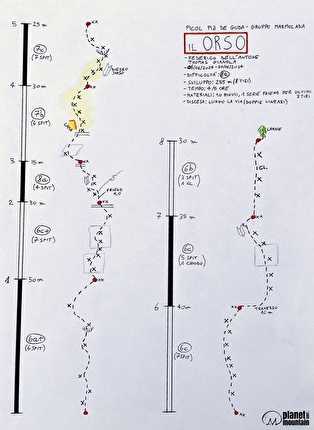 PICOL PIZ DE GUDA - GRUPPO MARMOLADA
IL ORSO
- FEDERICO DELL'ANTONE
THOMAS GIANOLA
- DIFFICOLTÀ: 8a
- SVILUPPO: 255 m (8 TIRI)
- TEMPO: 4/5 ORE
- MATERIALI: 10 RINVII, 1 SERIE FRIEND PER ULTIMI
2 TIRI
- DISCESA: LUNGO LA VIA (DOPPIE LINEARI)
5 25 m
7c
(7 SPIT)
4 30 m
7b
(6 SPIT)
3 15 m
8a
(4 SPIT)
FRIEND
2 30 m
6c+
(7 SPIT)
1 50 m
6a+
(6 SPIT)
LARICE
8 30 m
6b
(3 SPIT
1 CL.
CL
7 35 m
6c
(5 SPIT
1 CHIODO)
6 40 m
TRAVERSO
10 m
6c
(7 SPIT)
planet
mountain